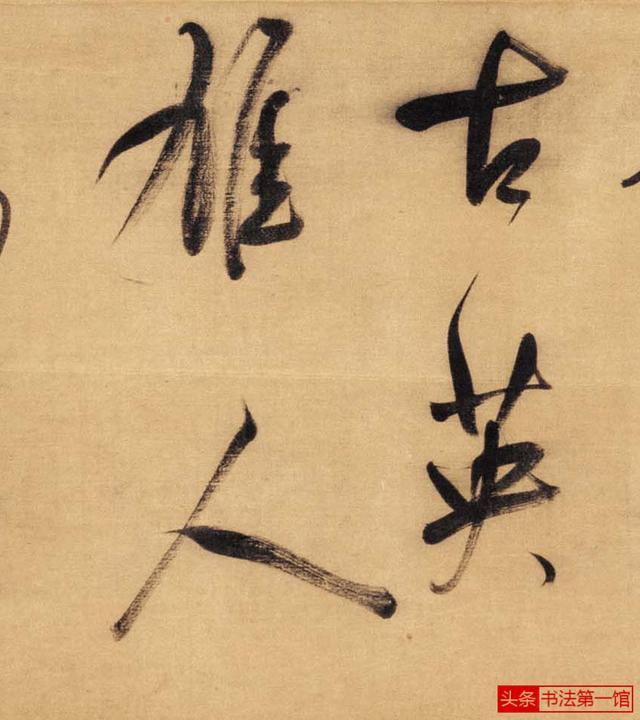 古英
雄人
头条 书法第一馆